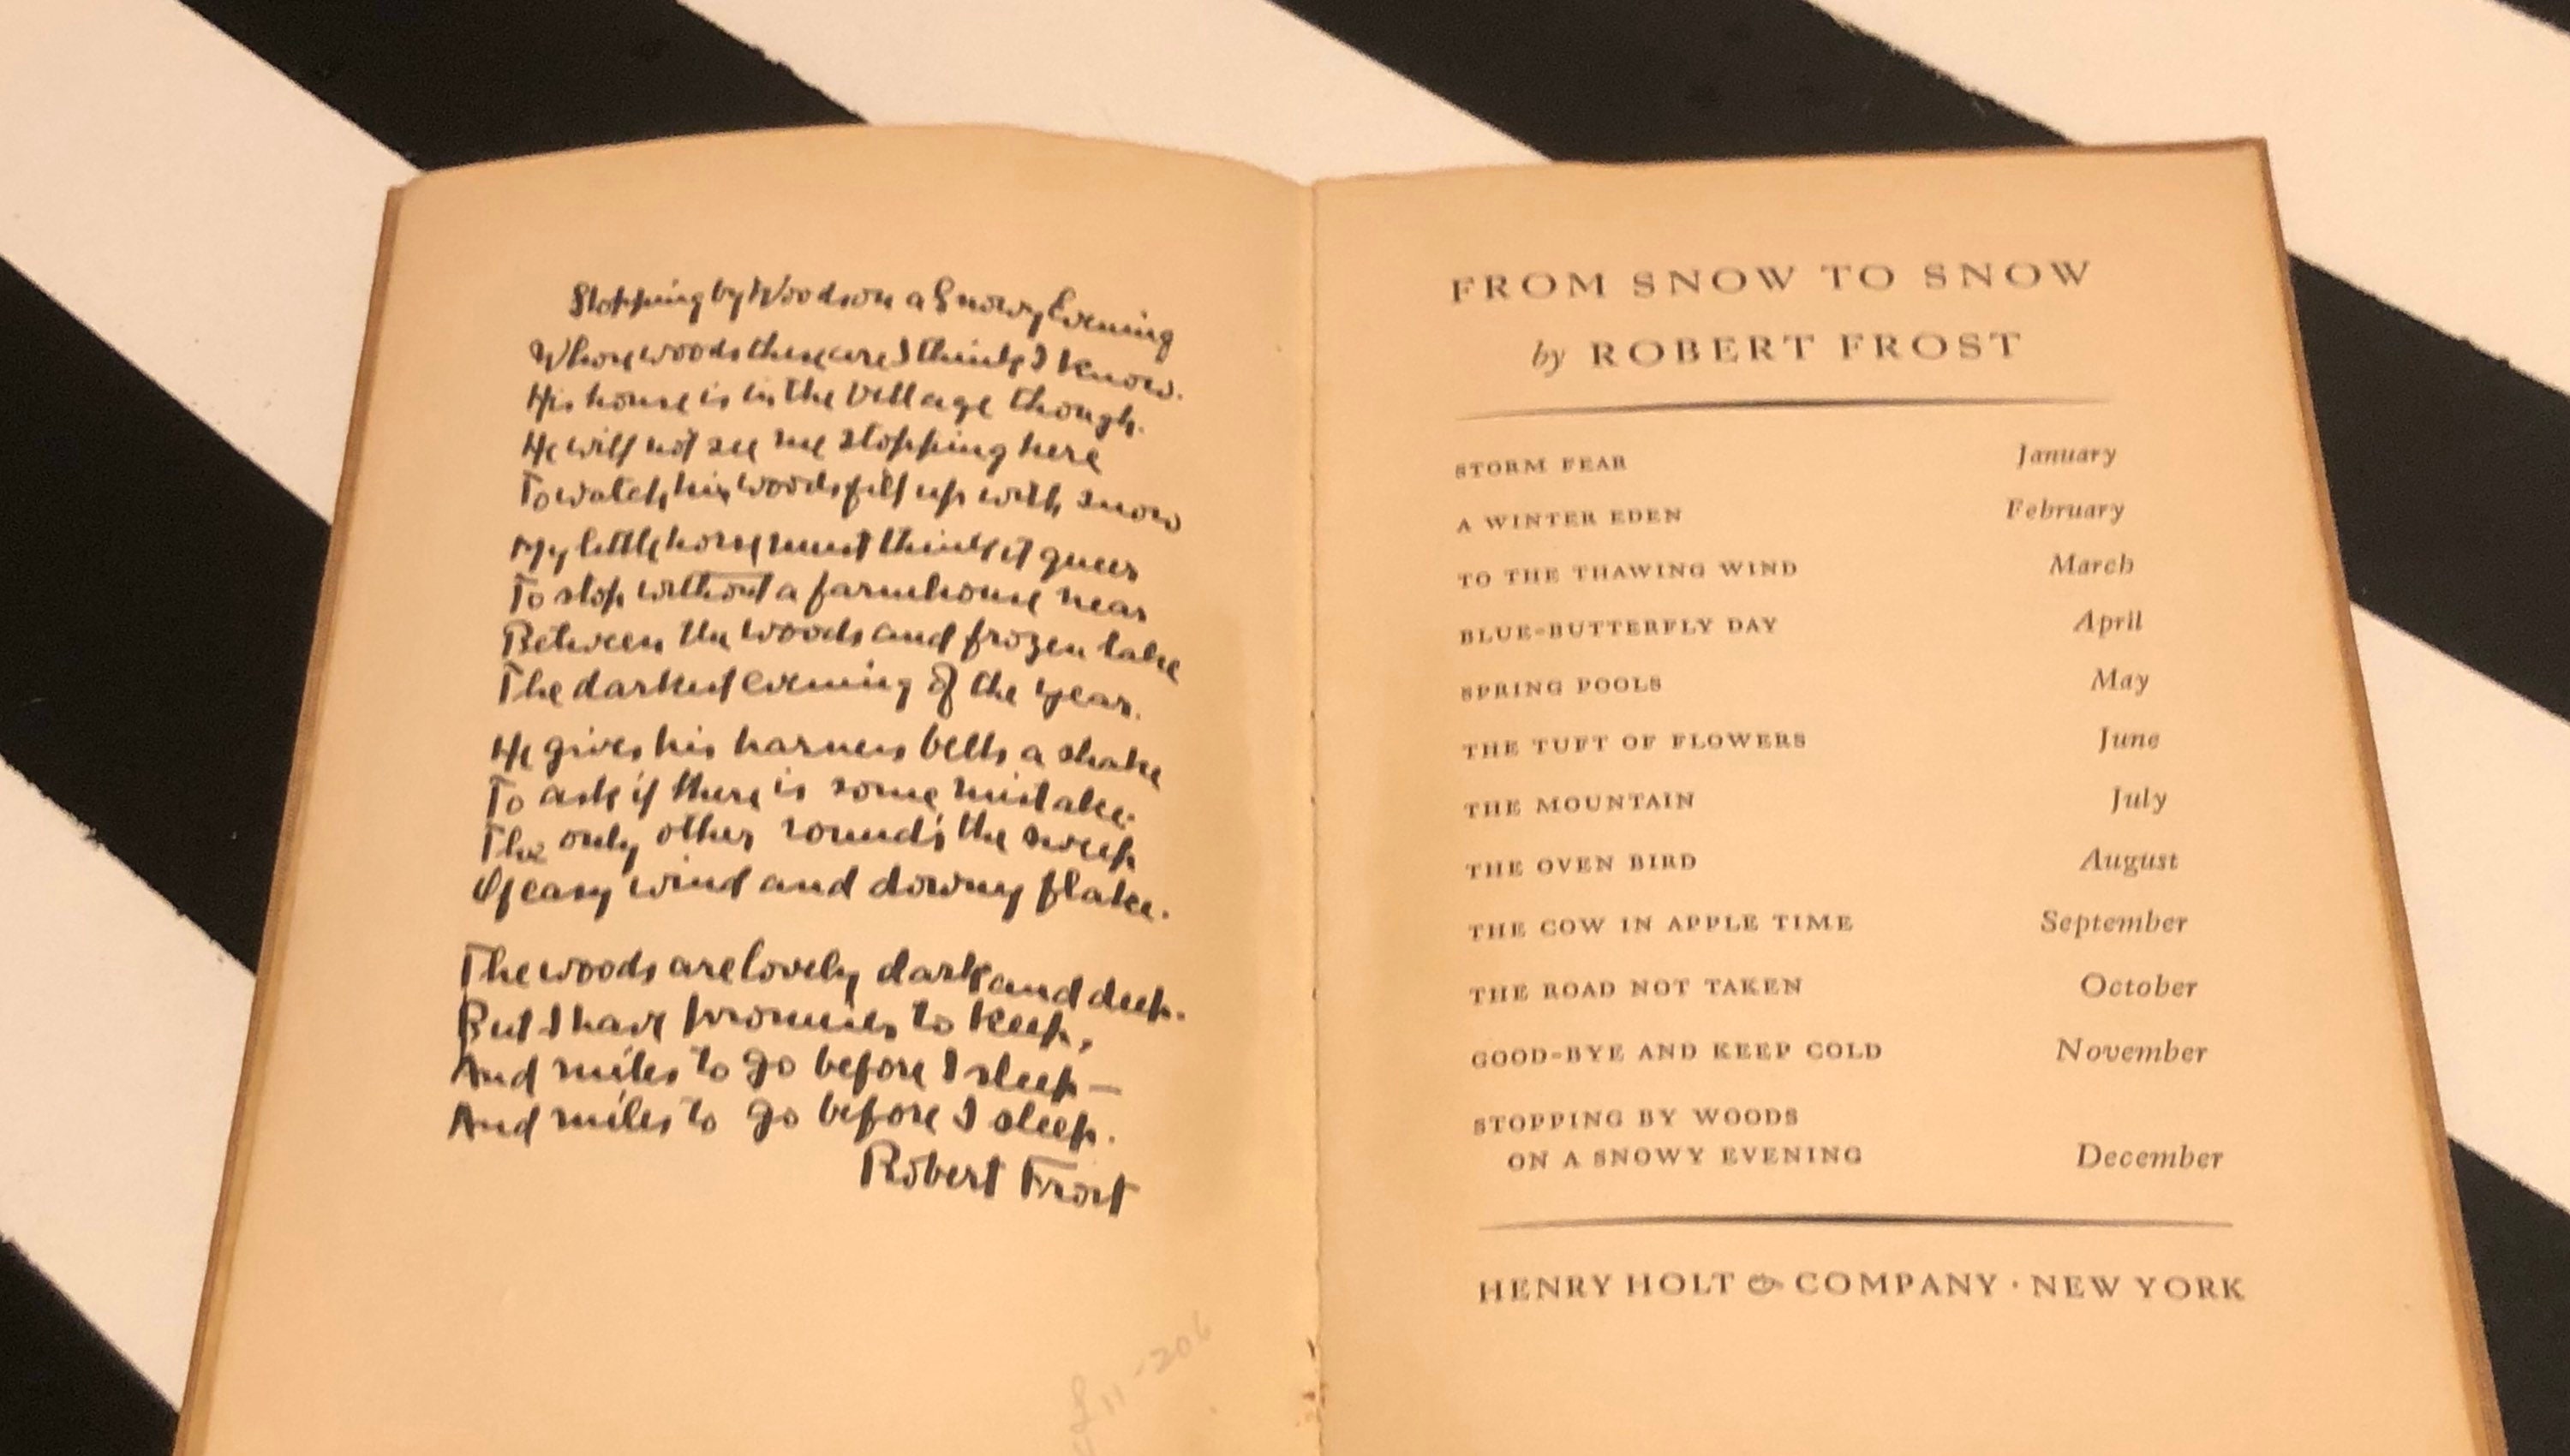 Stopping by Woods on a Snowy Evening
Whose woods these are I think I know.
His house is in the village though.
He will not see me stopping here
To watch his woods fill up with snow
My little horse must think it queer
To stop without a farmhouse near
Between the woods and frozen lake
The darkest evening of the year.
He gives his harness bells a shake
To ask if there is some mistake.
The only other sound's the sweep
Of easy wind and downy flake.
The woods are lovely dark and deep.
But I have promises to keep,
And miles to go before I sleep —
And miles to go before I sleep.
Robert Frost
FROM SNOW TO SNOW
by ROBERT FROST
STORM FEAR January
A WINTER EDEN February
TO THE THAWING WIND March
BLUE-BUTTERFLY DAY April
SPRING POOLS May
THE TUFT OF FLOWERS June
THE MOUNTAIN July
THE OVEN BIRD August
THE COW IN APPLE TIME September
THE ROAD NOT TAKEN October
GOOD-BYE AND KEEP COLD November
STOPPING BY WOODS
ON A SNOWY EVENING December
HENRY HOLT & COMPANY · NEW YORK